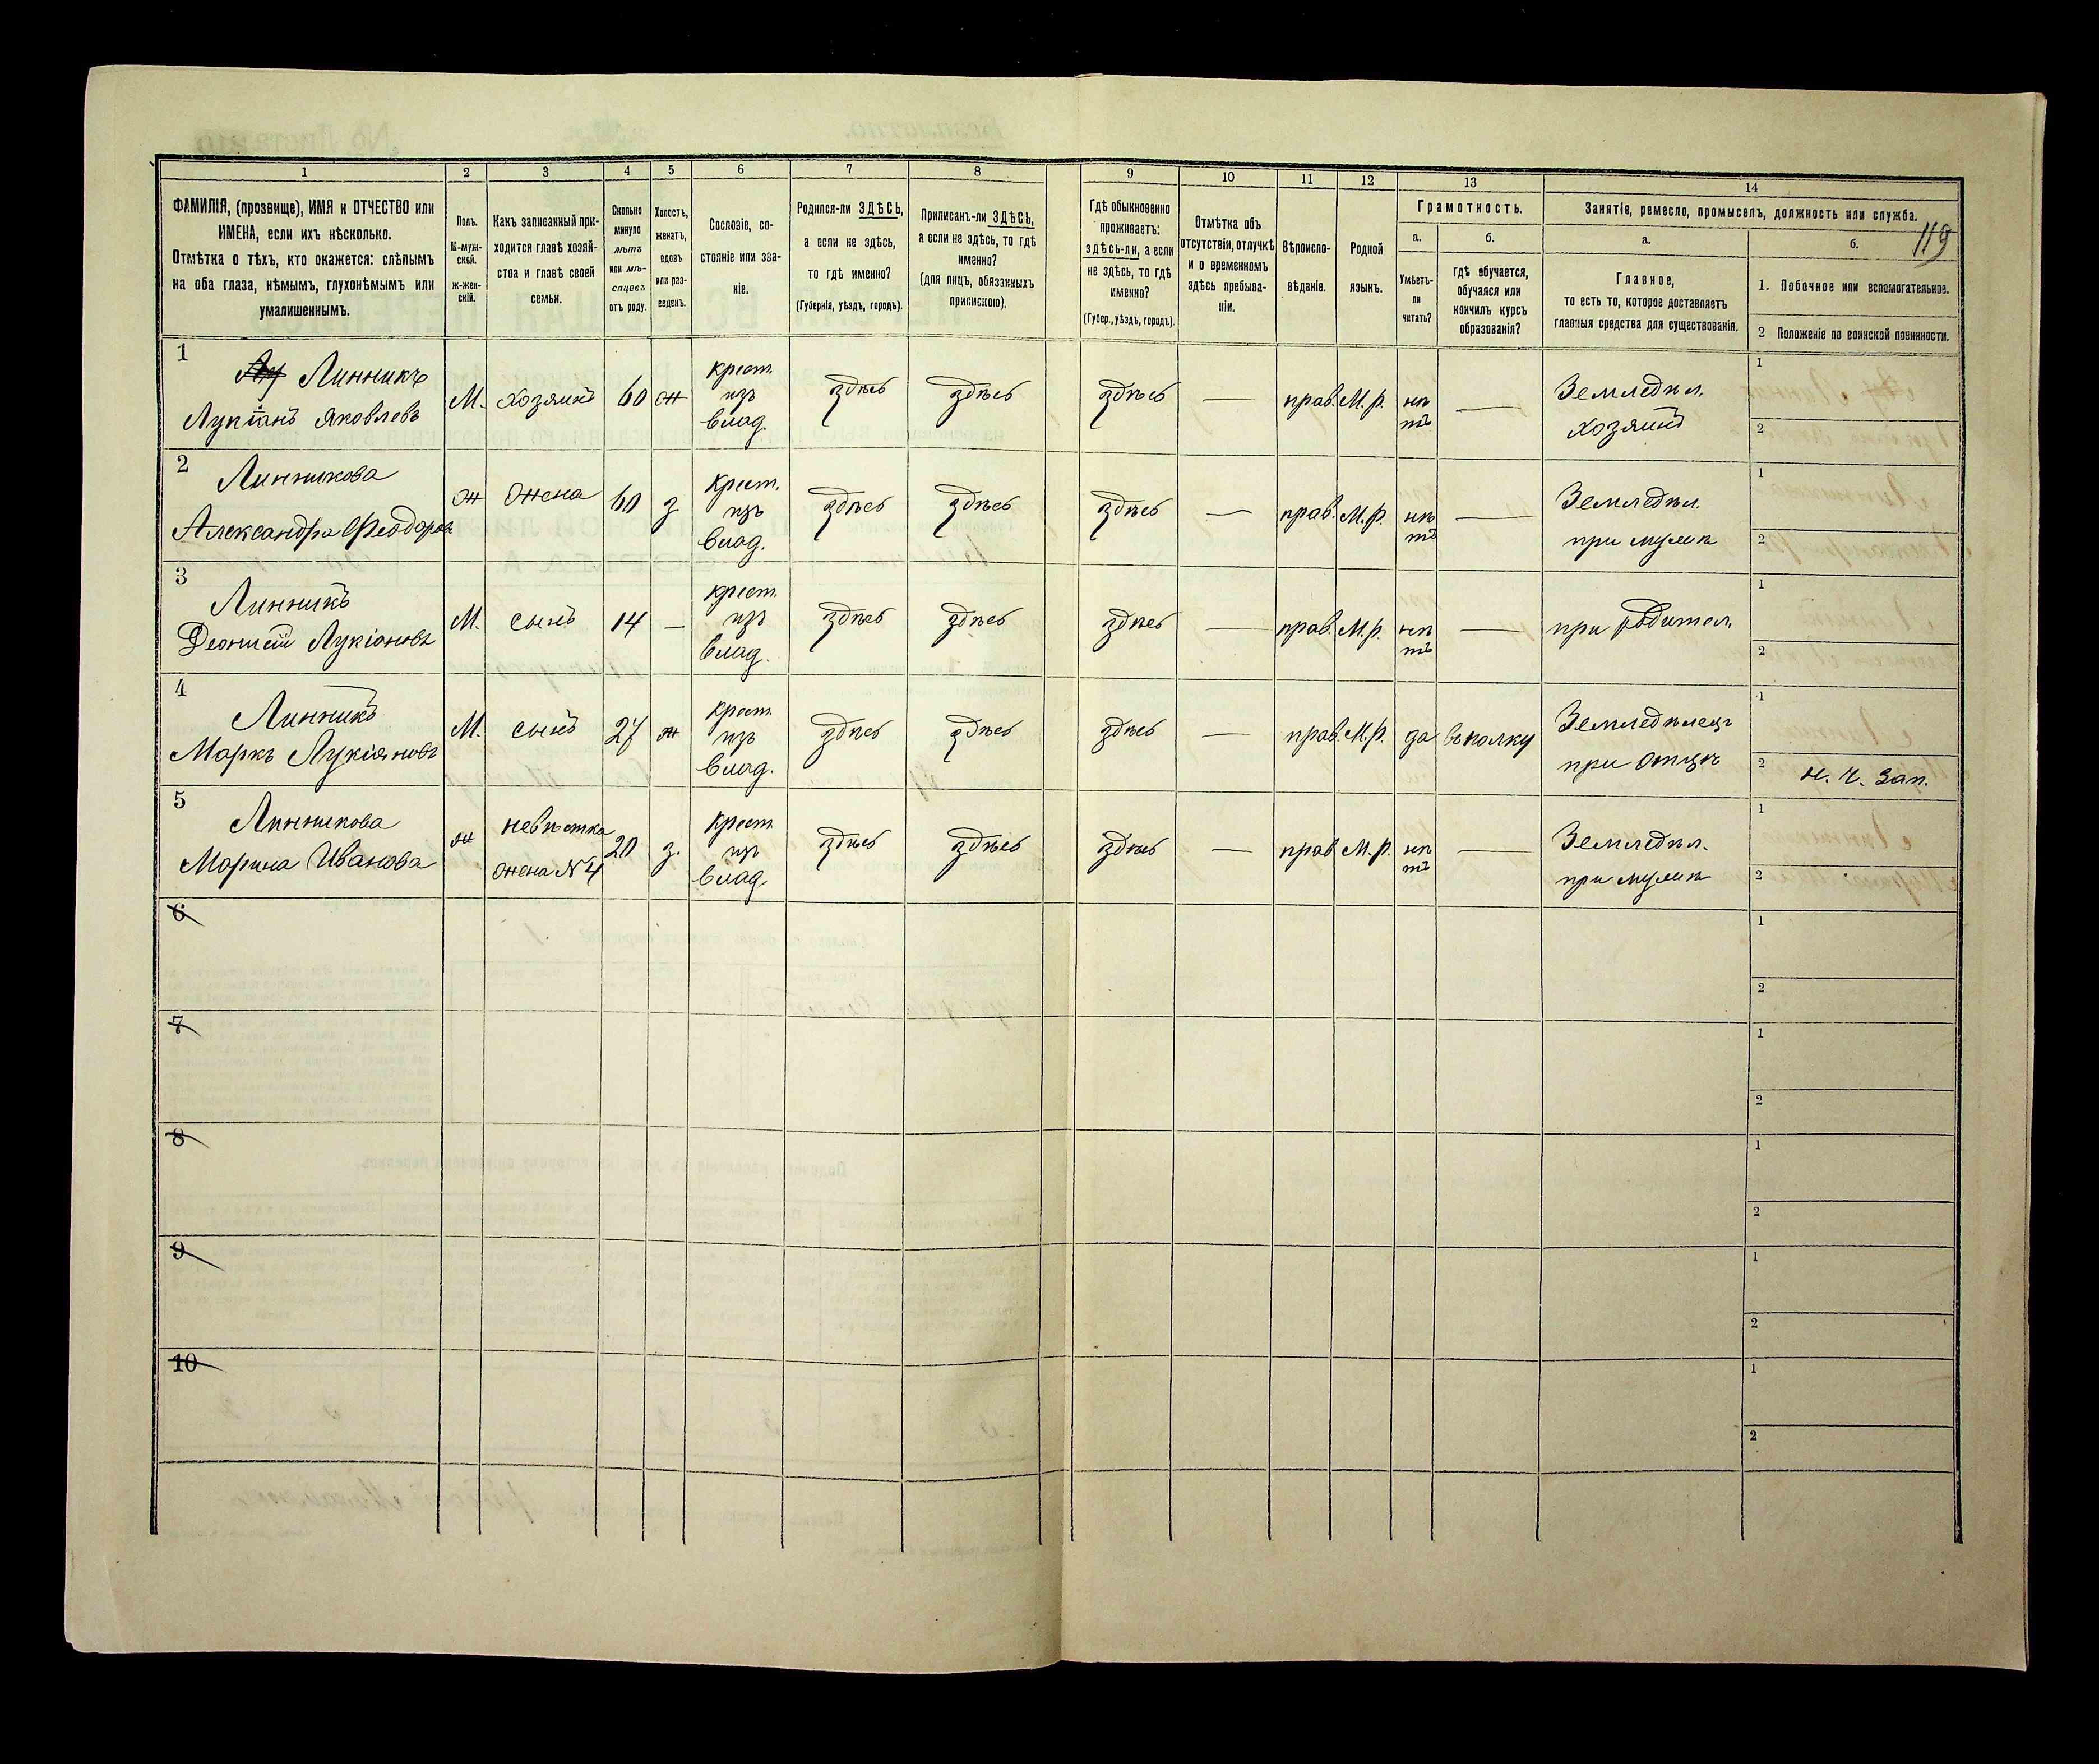 119
1 2 3 4 5 6 7 8 9 10 11 12 13 14
ФАМИЛІЯ, (прозвище), ИМЯ и ОТЧЕСТВО или
ИМЕНА, если ихъ нѣсколько.
Отмѣтка о тѣхъ, кто окажется: слѣпымъ
на оба глаза, нѣмымъ, глухонѣмымъ или
умалишеннымъ.
Полъ.
М-муж-
ской.
Ж-жен-
скій.
Какъ записанный при-
ходится главѣ хозяй-
ства и главѣ своей
семьи.
Сколько
минуло
лѣтъ
или мѣ-
сяцевъ
отъ роду.
Холостъ,
женатъ,
вдовъ
или раз-
веденъ.
Сословіе, со-
стояніе или зва-
ніе.
Родился-ли ЗДѢСЬ,
а если не здѣсь,
то гдѣ именно?
(Губернія, уѣздъ, городъ).
Приписанъ-ли ЗДѢСЬ,
а если не здѣсь, то гдѣ
именно?
(для лицъ, обязанныхъ
припискою).
Гдѣ обыкновенно
проживаетъ:
здѣсь-ли, а если
не здѣсь, то гдѣ
именно?
(Губер., уѣздъ, городъ).
Отмѣтка объ
отсутствіи, отлучкѣ
и о временномъ
здѣсь пребыва-
ніи.
Вѣроиспо-
вѣданіе.
Родной
языкъ.
Грамотность.
а.
Умѣетъ-
ли
читать?
б.
гдѣ обучается,
обучался или
кончилъ курсъ
образованія?
Занятіе, ремесло, промыселъ, должность или служба.
а.
Главное,
то есть то, которое доставляетъ
главныя средства для существованія.
б.
1. Побочное или вспомогательное.
2 Положеніе по воинской повинности.
1 Линникъ
Лукіанъ Яковлевъ
М. хозяинъ 60 ж
крест.
изъ
влад.
здѣсь здѣсь здѣсь — прав. М.р. нѣ
тъ —
Земледѣл.
хозяинъ
1
2
2 Линникова
Александра Феодорова
ж жена 60 з
крест.
изъ
влад.
здѣсь здѣсь здѣсь — прав. М.р. нѣ
тъ —
Земледѣл.
при мужѣ
1
2
3 Линникъ
Деонисій Лукіановъ
М. сынъ 14 —
крест.
изъ
влад.
здѣсь здѣсь здѣсь — прав. М.р. нѣ
тъ —
при родител.
1
2
4 Линникъ
Маркъ Лукіяновъ
М. сынъ 27 ж
крест.
изъ
влад.
здѣсь здѣсь здѣсь — прав. М.р. да въ полку
Земледѣлецъ
при отцѣ
1
2 Н. Ч. Зап.
5 Линникова
Марина Иванова
ж невѣстка
жена № 4
20 з.
крест.
изъ
влад.
здѣсь здѣсь здѣсь — прав. М.р. нѣ
тъ —
Земледѣл.
при мужѣ
1
2
6
1
2
7
1
2
8
1
2
9
1
2
10
1
2